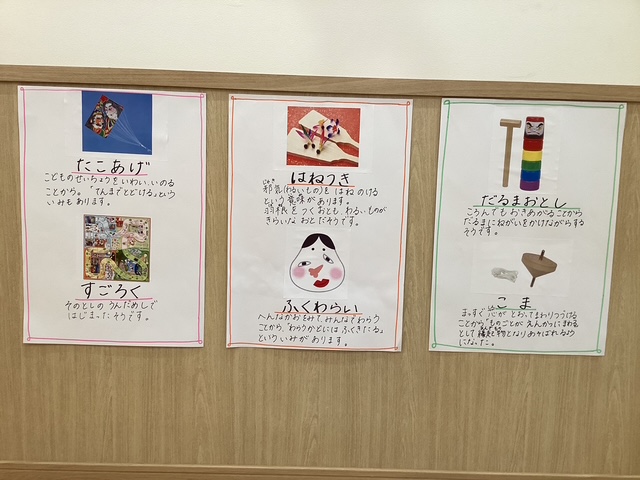 たこあげ
こどものせいちょうをいわい、いのる
ことから。「てんまでとどける」という
いみもあります。
すごろく
そのとしの うんだめしで
はじまったそうです。
はねつき
邪気(わるいもの)を はねのける
という 意味が あります。
羽根を つくおとも わるいものが
きらいな おとだそうです。
ふくわらい
へんなかおをみて、みんなでわらう
ことから、「わらうかどには ふくきたる」
という いみが あります。
だるまおとし
ころんでも おきあがることから
だるまに ねがいを かけながらする
そうです。
こま
まっすぐ 芯が とおってまわりつづける
ことから“ものごとが えんかつにまわる
として 縁起物となり あそばれるよう
になった。